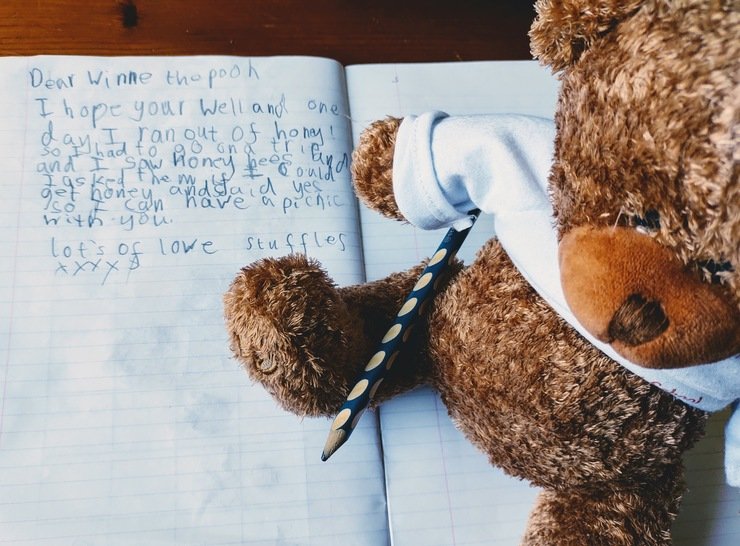 Dear Winne the pooh
I hope your Well and one
day I ran out of honey!
so I had to go on a trip
and I saw honey bees and
I asked them if I could
get honey and said yes
so I can have a picnic
with you.
lot's of love stuffles
xxxxx